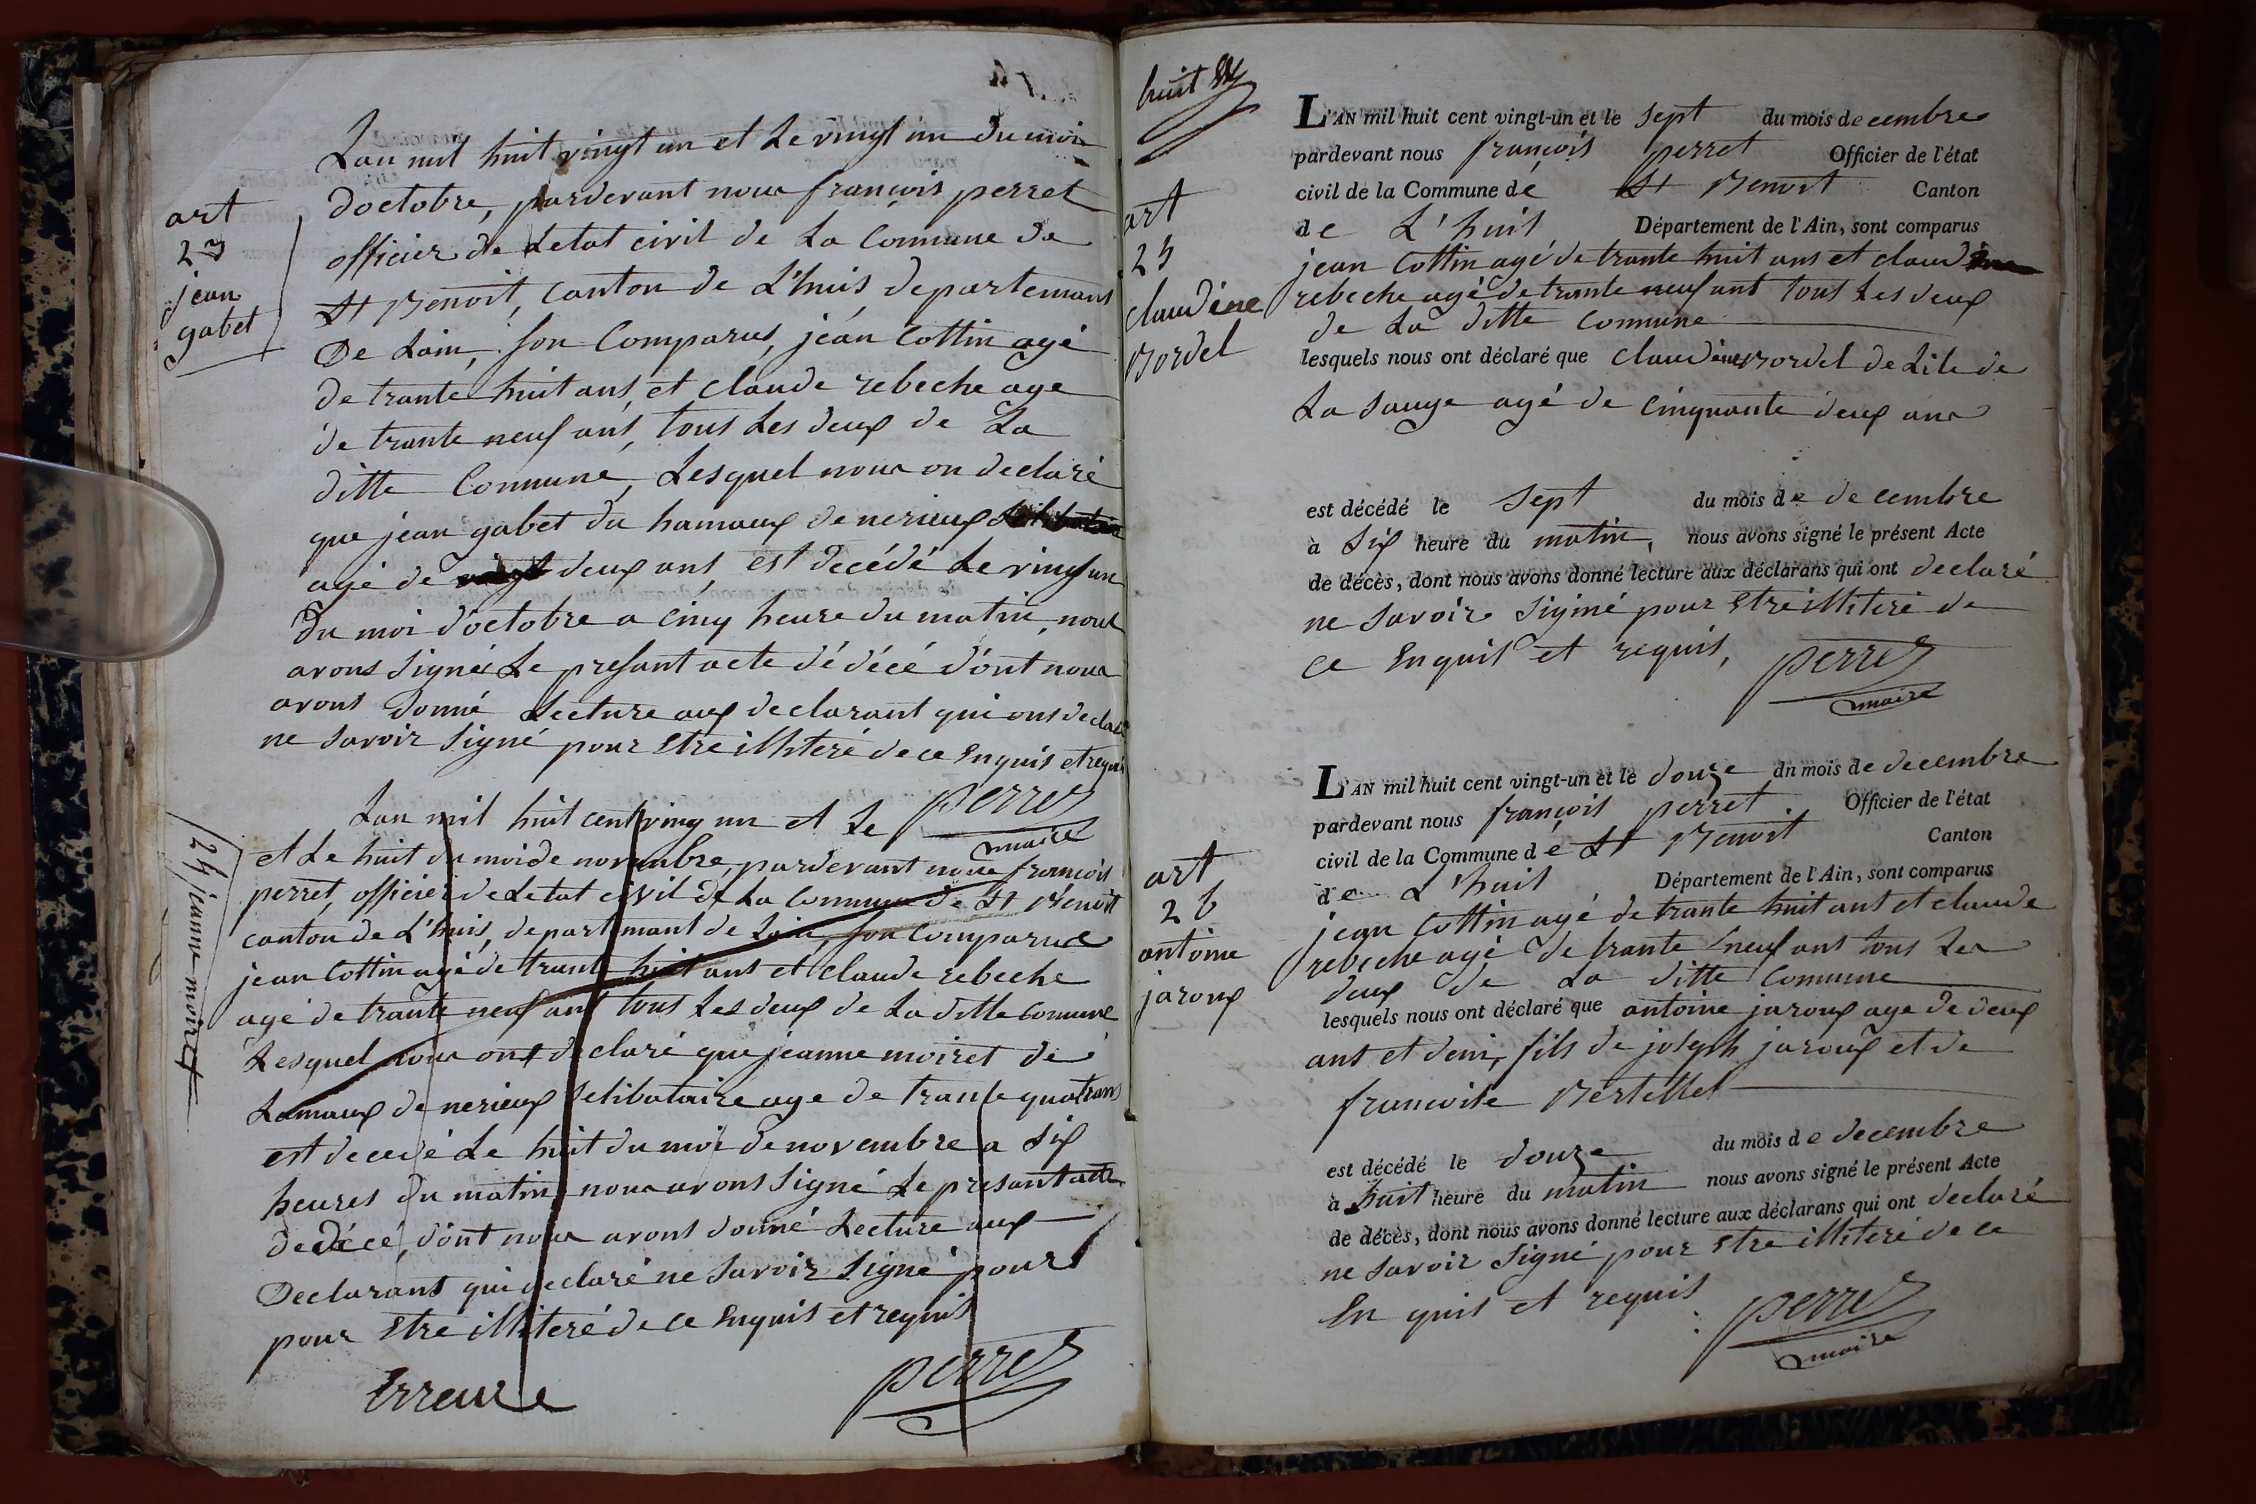 art
23
jean
gabet
Lan mil huit vingt un et Le vingt un du moi
doctobre, pardevant nous françois perret
officier de Letat civil de La Commune de
St Benoit, canton de L'huis, departemans
De Lain, son Comparus, jean Cottin agé
de trante huit ans, et claude rebeche age
de trante neuf ans, tous Les deux de La
ditte Commune, Lesquel nous on declaré
que jean gabet du hamaux de nerieux
agé de deux ans, est decédé Le vingt un
du moi doctobre a cinq heure du matin, nous
avons signée Le presant acte dédécé dont nous
avons donné Lecture aux declarant qui ons declaré
ne savoir signé pour Etre illiteré de ce Enquis et requis
perret
maire
24 jeanne moiret
Lan mil huit cent ving un et Le
et Le huit du moi de novembre, pardevant nous françois
perret, officier de Letat civil de La Commune de St Benoit
canton de L'huis, departemant de Lain, son Comparus
jean Cottin agé de trante huit ans et claude rebeche
agé de trante neuf ans tous Les deux de La ditte Comune
Lesquel nous ont declaré que jeanne moiret de
Lamaux de nerieux selibataire age de trante quatrans
est decedé Le huit du moi de novembre a six
heures du matin nous avons signé Le presant acte
de décé, dont nous avons donné Lecture aux
Declarans qui declaré ne savoir signé pour
pour Etre illiteré de ce Enquis et requis
Erreure
perret
huit
art
25
claudine
Bordel
L'AN mil huit cent vingt-un et le sept du mois decembre
pardevant nous françois perret Officier de l'état
civil de la Commune de St Benoit Canton
de L'huis Département de l'Ain, sont comparus
jean Cottin agé de trante huit ans et claude
rebeche agé de trante neuf ans tous Les deux
de La ditte Commune
lesquels nous ont déclaré que claudine Bordel de Lile de
La sauge agé de cinquante deux ans
est décédé le sept du mois de decembre
à six heure du matin, nous avons signé le présent Acte
de décès, dont nous avons donné lecture aux déclarans qui ont declaré
ne savoir signé pour Etre illiteré de
ce Enquis et requis,
perret
maire
art
26
antoine
jaroux
L'AN mil huit cent vingt-un et le douze du mois de decembre
pardevant nous françois perret Officier de l'état
civil de la Commune de St Benoit Canton
de L'huis Département de l'Ain, sont comparus
jean Cottin agé de trante huit ans et claude
rebeche agé de trante neuf ans tous Les
deux de La ditte Commune
lesquels nous ont déclaré que antoine jaroux age de deux
ans et demi, fils de joseph jaroux et de
francoise Bertellet
est décédé le douze du mois de decembre
à huit heure du matin nous avons signé le présent Acte
de décès, dont nous avons donné lecture aux déclarans qui ont declaré
ne savoir signé pour Etre illiteré de ce
En quis et requis
perret
maire